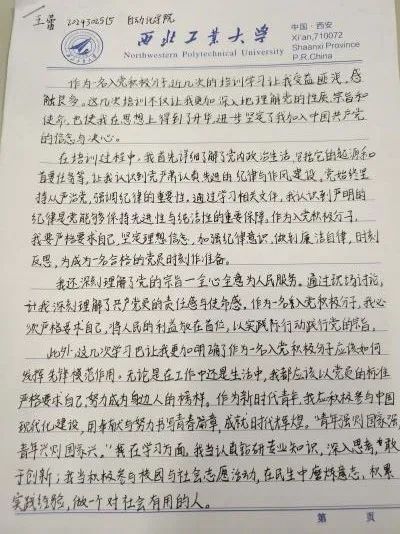 王蕾 2024302515 自动化学院
西北工业大学
Northwestern Polytechnical University
中国·西安
Xi'an,710072
Shaanxi Province
P.R.China
作为一名入党积极分子,近几次的培训学习让我受益匪浅,感
触良多。这几次培训不仅让我更加深入地理解党的性质、宗旨和
使命,也使我在思想上得到了升华,进一步坚定了我加入中国共产党
的信念与决心。
在培训过程中,我首先详细了解了党内政治生活,包括它的起源和
首要任务等,让我认识到党严肃认真先进的纪律与作风建设,党始终坚
持从严治党,强调纪律的重要性。通过学习相关文件,我认识到严明的
纪律是党能够保持先进性与纯洁性的重要保障,作为入党积极分子,
我要严格要求自己,坚定理想信念,加强纪律意识,做到廉洁自律,时刻
反思,为成为一名合格的党员时刻作准备。
我还深刻理解了党的宗旨—全心全意为人民服务。通过
讨论,
让我深刻理解了共产党员的责任感与使命感,作为一名入党积极分子,我必
须严格要求自己,将人民的利益放在首位,以实践行动践行党的宗旨。
此外,这几次学习也让我更加明确了作为一名入党积极分子应该如何
发挥先锋模范作用。无论是在工作中还是生活中,我都应该以党员的标准
严格要求自己,努力成为身边人的榜样。作为新时代青年,我在积极参与中国
现代化建设,用奉献与努力书写青春篇章,成就时代辉煌。“青年强则国家强,
青年兴则国家兴。”我在学习方面,我当认真钻研专业知识,深入思考,敢
于创新;我当积极参与校园与社会志愿活动,在民生中磨炼意志,积累
实践经验,做一个对社会有用的人。
第 页